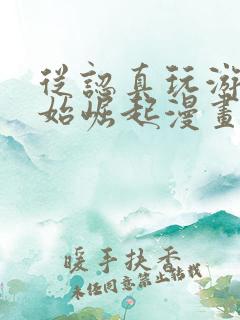 從認真玩游
始崛起漫畫
暖手扶香
未經同意禁止轉載